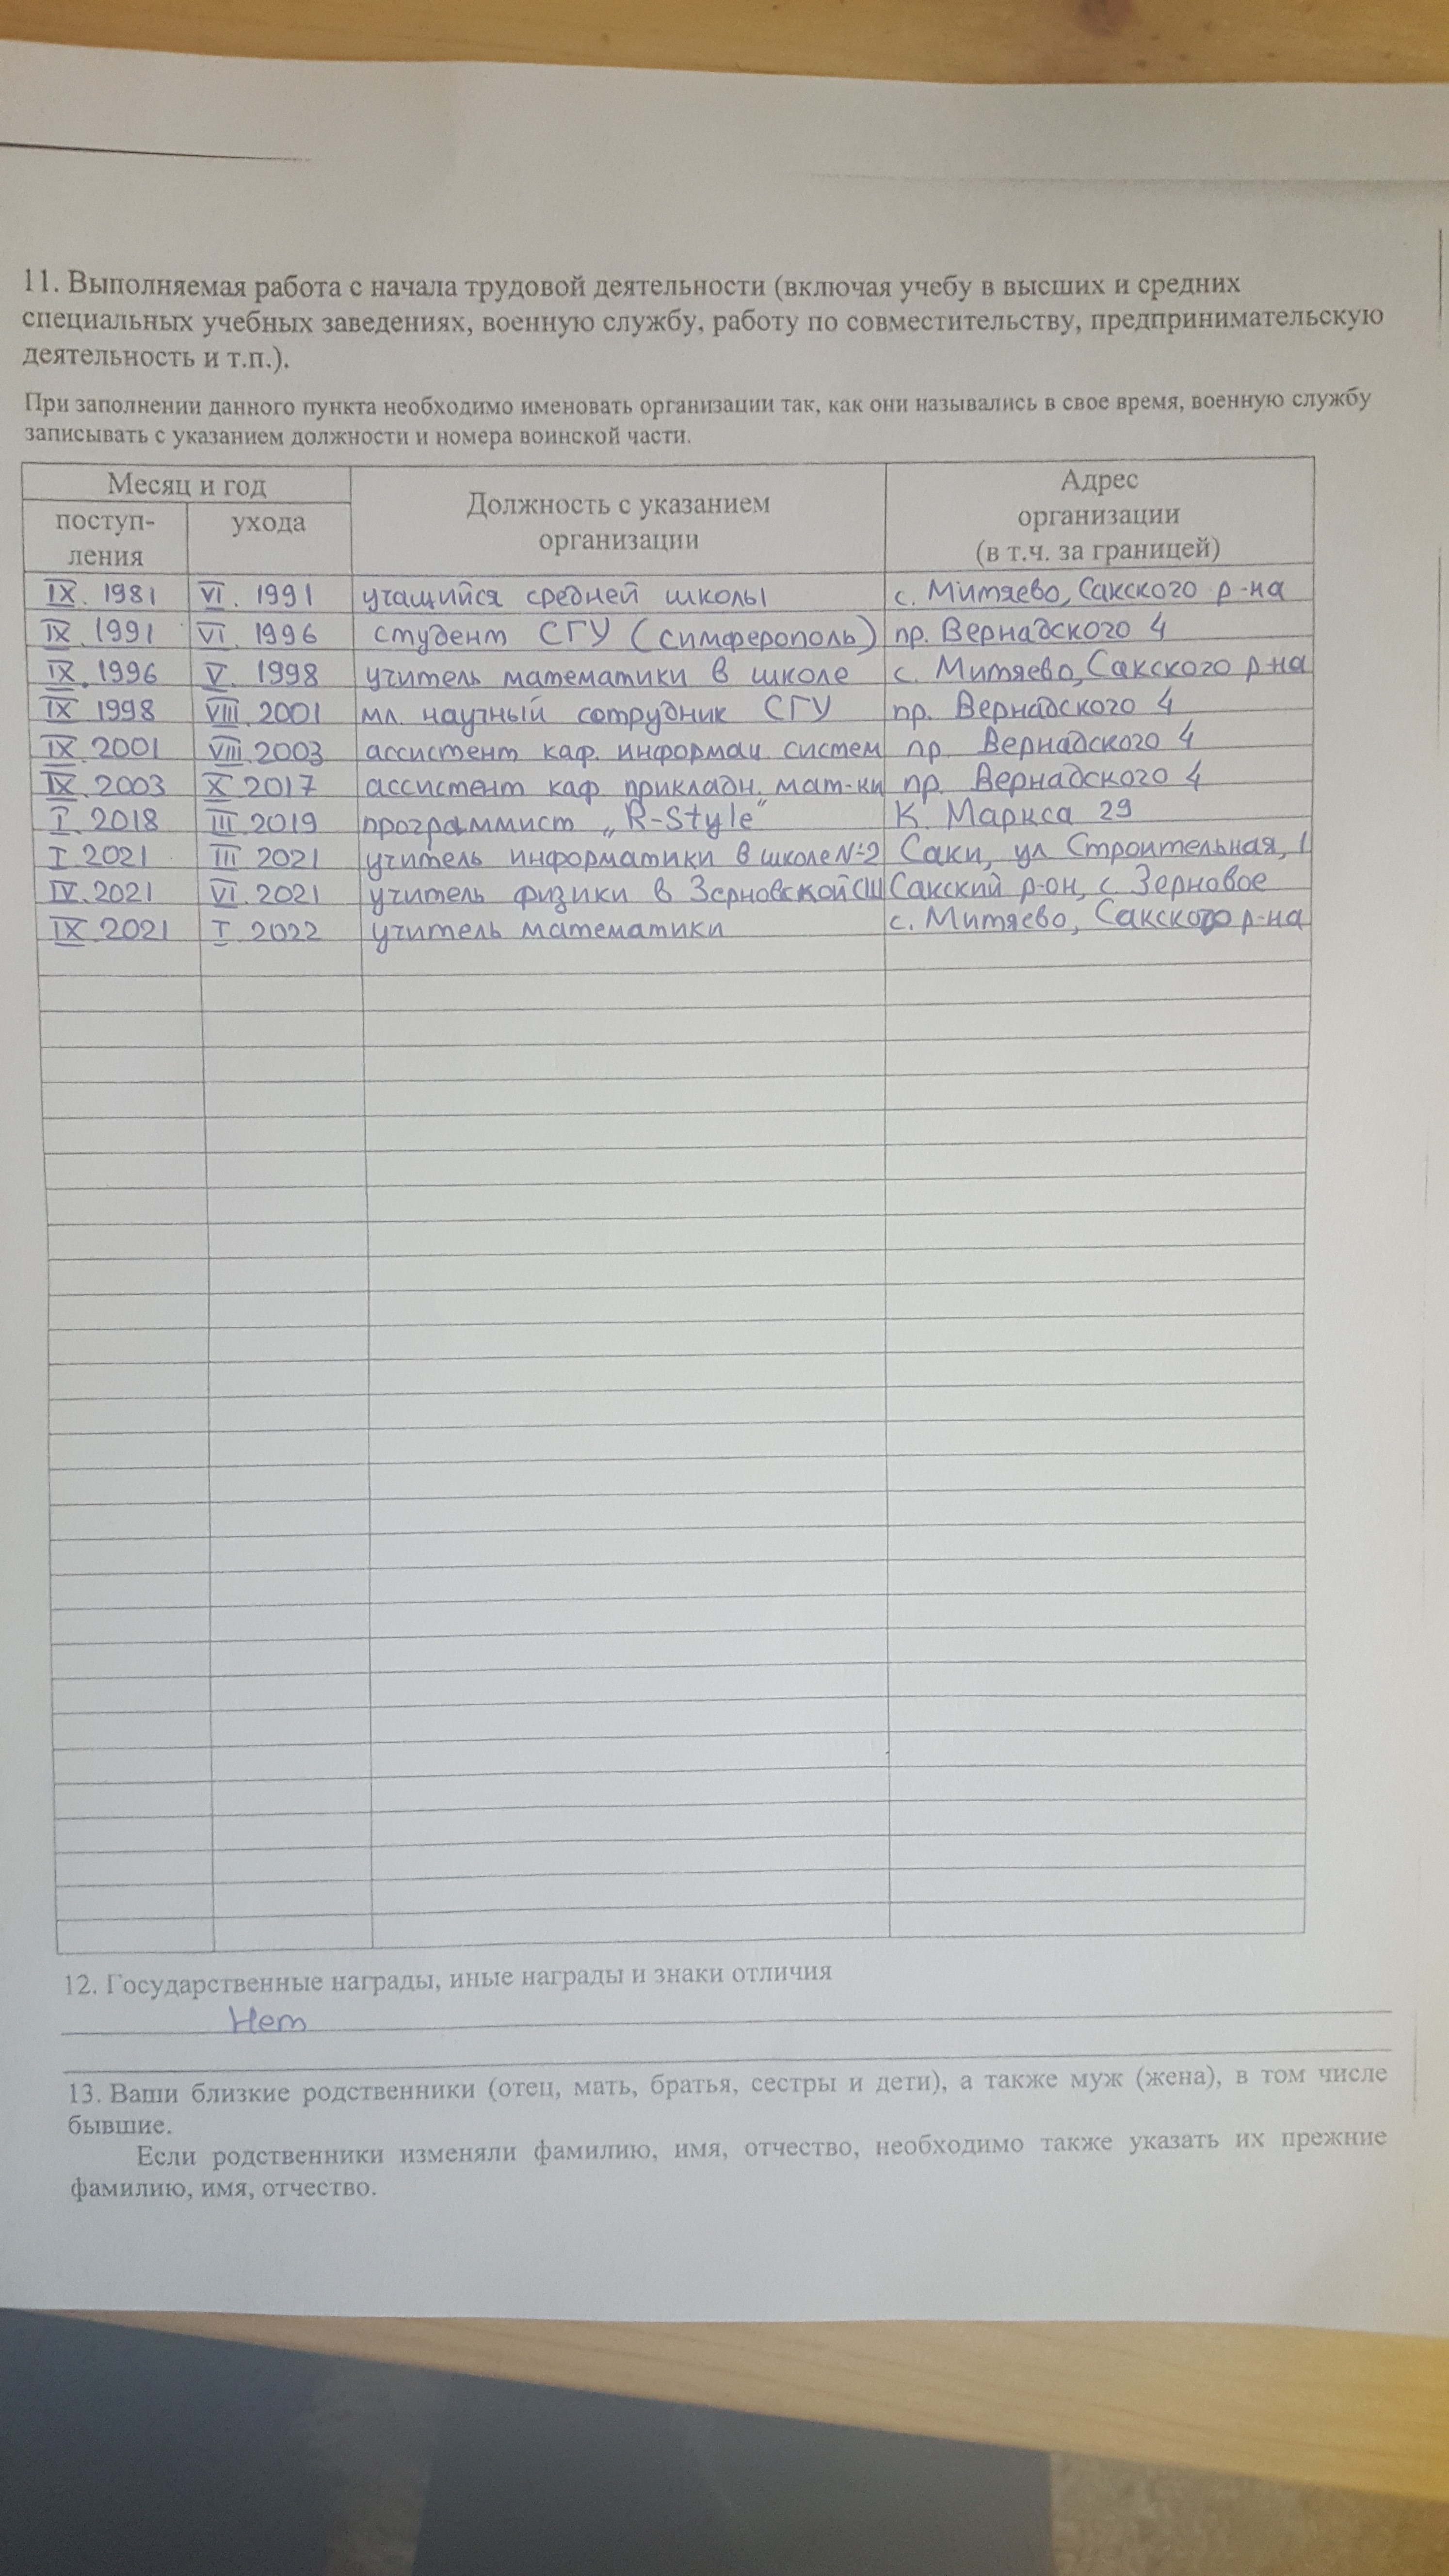 11. Выполняемая работа с начала трудовой деятельности (включая учебу в высших и средних
специальных учебных заведениях, военную службу, работу по совместительству, предпринимательскую
деятельность и т.п.).
При заполнении данного пункта необходимо именовать организации так, как они назывались в свое время, военную службу
записывать с указанием должности и номера воинской части.
Месяц и год
поступ-
ления
ухода
Должность с указанием
организации
Адрес
организации
(в т.ч. за границей)
IX. 1981 VI. 1991 учащийся средней школы с. Митяево, Сакского р-на
IX. 1991 VI. 1996 студент СГУ (Симферополь) пр. Вернадского 4
IX. 1996 V. 1998 учитель математики в школе с. Митяево, Сакского р-на
IX 1998 VIII. 2001 мл. научный сотрудник СГУ пр. Вернадского 4
IX. 2001 VIII. 2003 ассистент каф. информац. систем пр. Вернадского 4
IX. 2003 X. 2017 ассистент каф. прикладн. мат-ки пр. Вернадского 4
I. 2018 III. 2019 программист „R-Style” К. Маркса 29
I 2021 III 2021 учитель информатики в школе №2 Саки, ул Строительная, 1
IV. 2021 VI. 2021 учитель физики в Зерновской СШ Сакский р-он, с. Зерновое
IX. 2021 I. 2022 учитель математики с. Митяево, Сакского р-на
12. Государственные награды, иные награды и знаки отличия
Нет
13. Ваши близкие родственники (отец, мать, братья, сестры и дети), а также муж (жена), в том числе
бывшие.
Если родственники изменяли фамилию, имя, отчество, необходимо также указать их прежние
фамилию, имя, отчество.